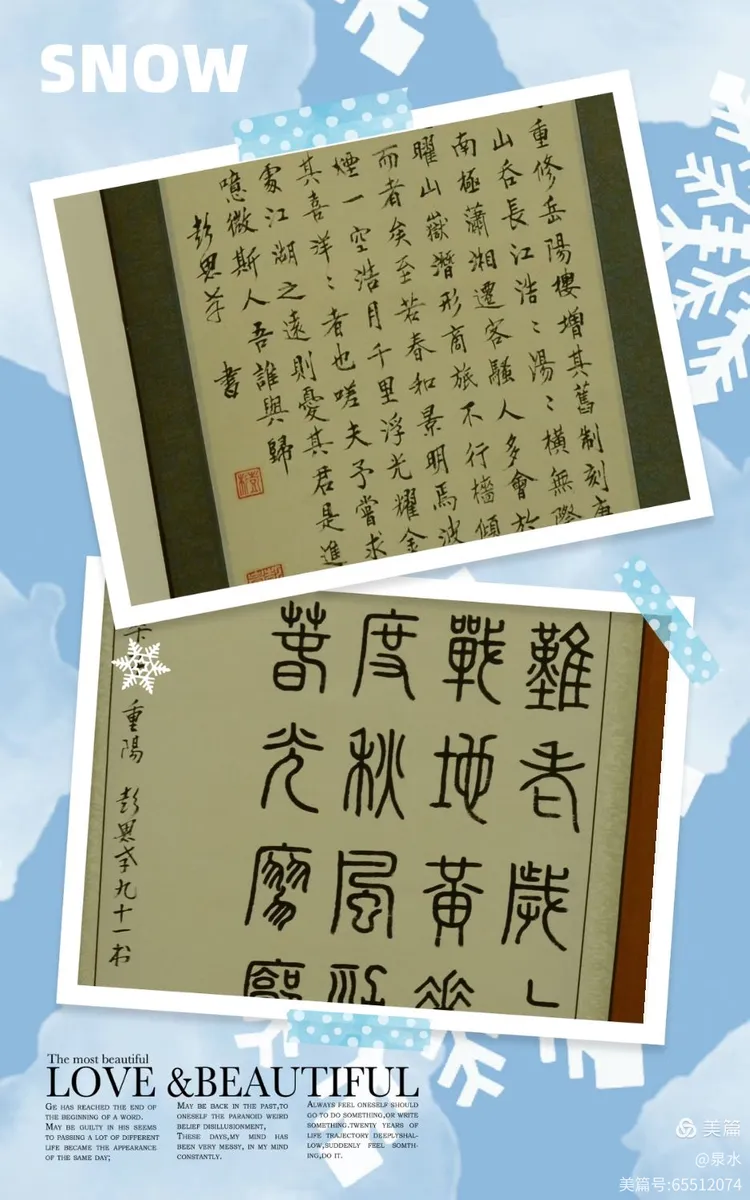 SNOW
重修岳陽樓增其舊制刻唐
山吞長江浩〻湯〻橫無際
南極瀟湘遷客騷人多會於
曜山嶽潛形商旅不行檣傾
而者矣至若春和景明焉波
煙一空浩月千里浮光耀金
其喜洋〻者也嗟夫予嘗求
處江湖之遠則憂其君是進
噫微斯人吾誰與歸
彭思芊 書
難老歲〻
戰地黃花
度秋風
春光廖廓
重陽 彭思芊九十一書
The most beautiful
LOVE &BEAUTIFUL
GE HAS REACHED THE END OF
THE BEGINNING OF A WORD.
MAY BE GUILTY IN HIS SEEMS
TO PASSING A LOT OF DIFFERENT
LIFE BECAME THE APPEARANCE
OF THE SAME DAY;
MAY BE BACK IN THE PAST,TO
ONESELF THE PARANOID WEIRD
BELIEF DISILLUSIONMENT,
THESE DAYS,MY MIND HAS
BEEN VERY MESSY, IN MY MIND
CONSTANTLY.
ALWAYS FEEL ONESELF SHOULD
GO TO DO SOMETHING,OR WRITE
SOMETHING.TWENTY YEARS OF
LIFE TRAJECTORY DEEPLYSHAL-
LOW,SUDDENLY FEEL SOMTH-
ING,DO IT.
美篇
@泉水
美篇号:65512074